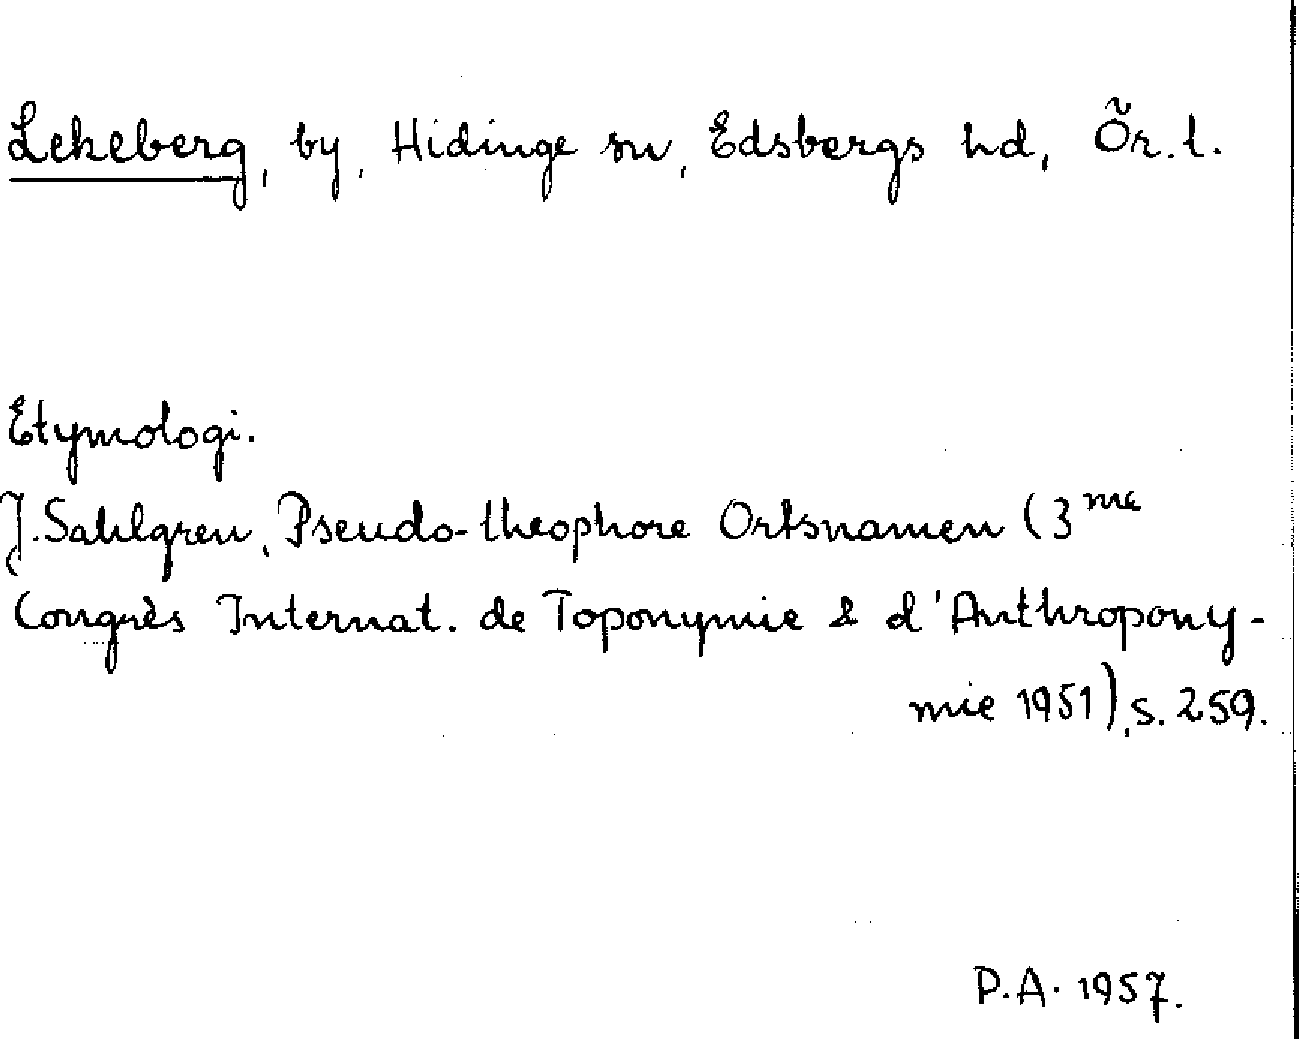 Lekeberg, by, Hidinge sn, Edsbergs hd, Ör. l.
Etymologi.
J. Sahlgren, Pseudo-theophore Ortsnamen (3me
Congrès Internat. de Toponymie & d'Anthropony-
mie 1951), s. 259.
P.A. 1957.